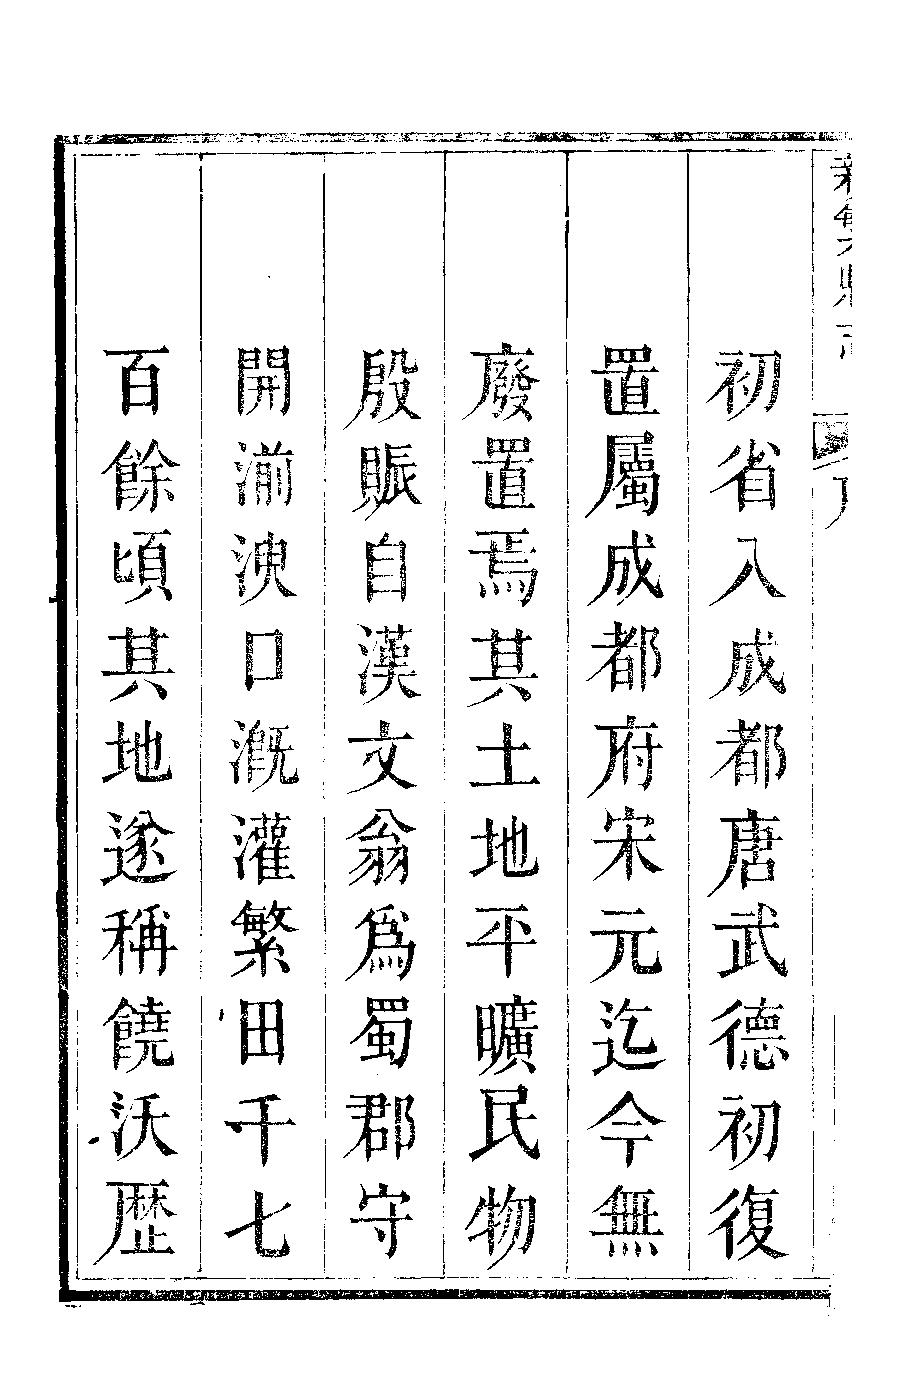 初省入成都唐武德初復
置屬成都府宋元迄今無
廢置焉其土地平曠民物
殷賑自漢文翁爲蜀郡守
開湔洩口漑灌繁田千七
百餘頃其地遂稱饒沃歴